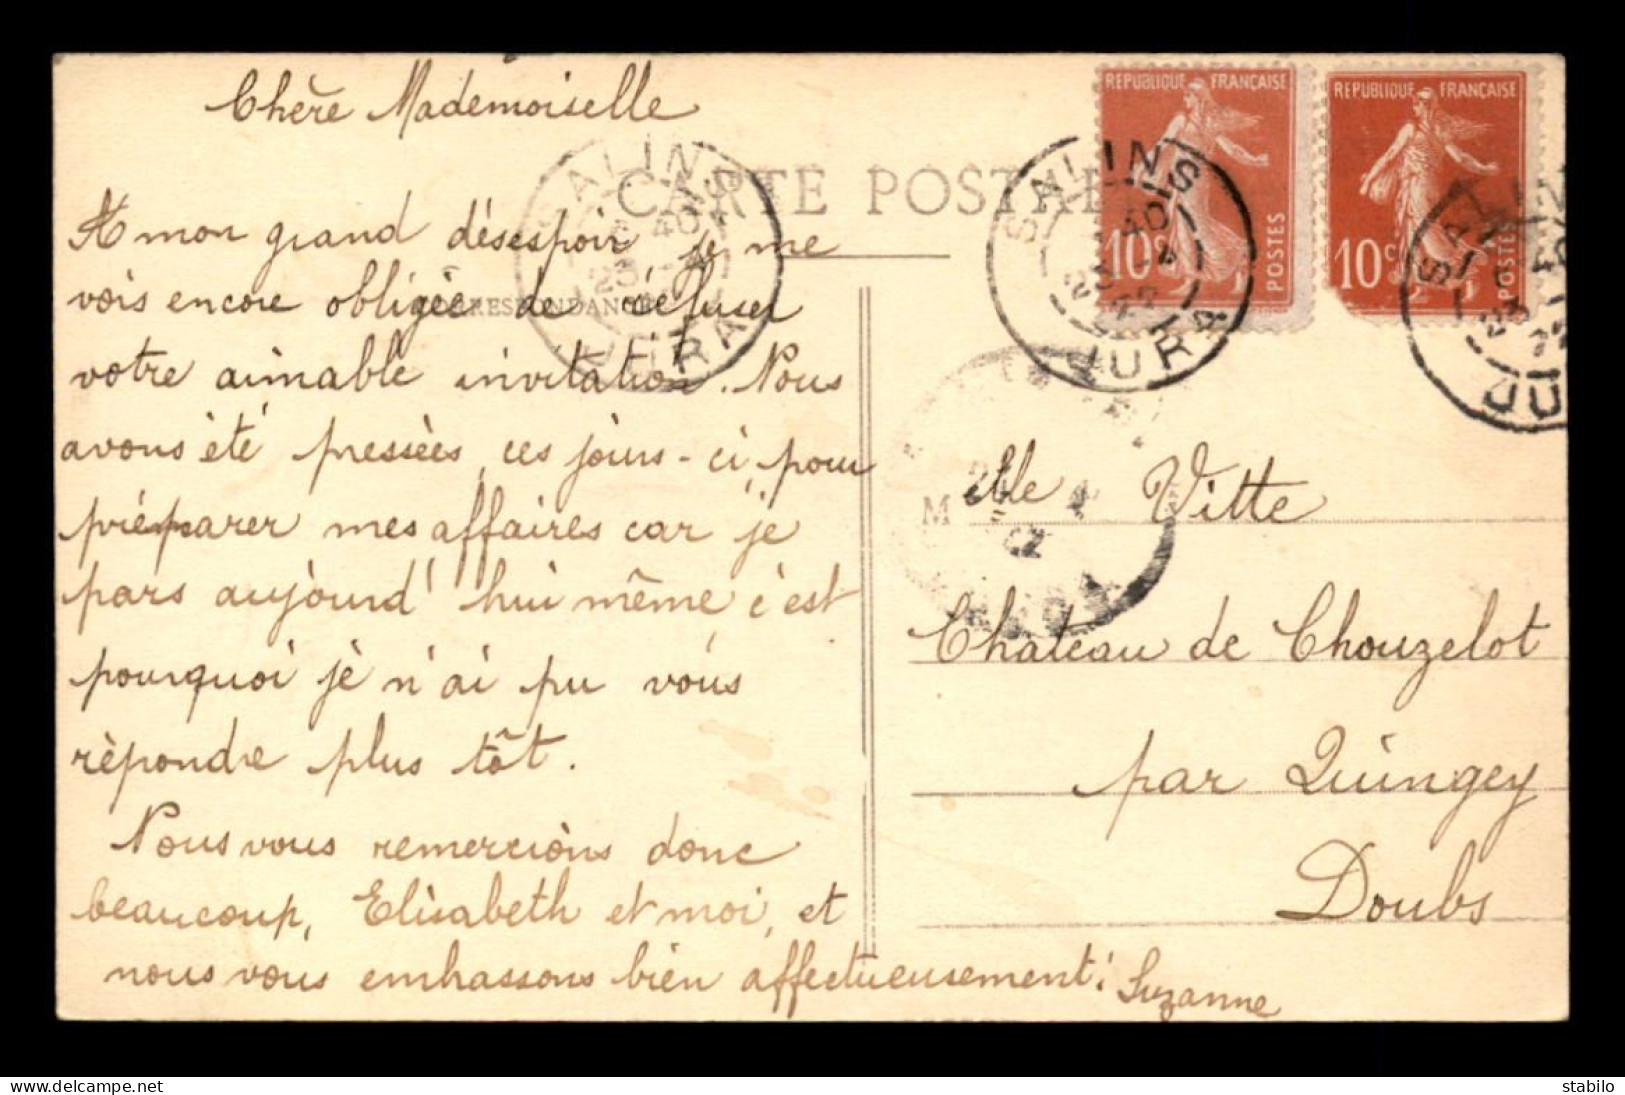 Chère Mademoiselle
A mon grand désespoir je me
vois encore obligée de refuser
votre aimable invitation. Nous
avons été pressées ces jours-ci, pour
préparer mes affaires car je
pars aujourd'hui même c'est
pourquoi je n'ai pu vous
répondre plus tôt.
Nous vous remercions donc
beaucoup, Elisabeth et moi, et
nous vous embrassons bien affectueusement.
Suzanne
CARTE POSTALE
CORRESPONDANCE
SALINS
JURA
SALINS
40
23 -4
22
JURA
REPUBLIQUE FRANÇAISE
10c
POSTES
REPUBLIQUE FRANÇAISE
10c
POSTES
SALIN
40
23
22
JU
M elle Vitte
Château de Chouzelot
par Quingey
Doubs
www.delcampe.net
stabilo